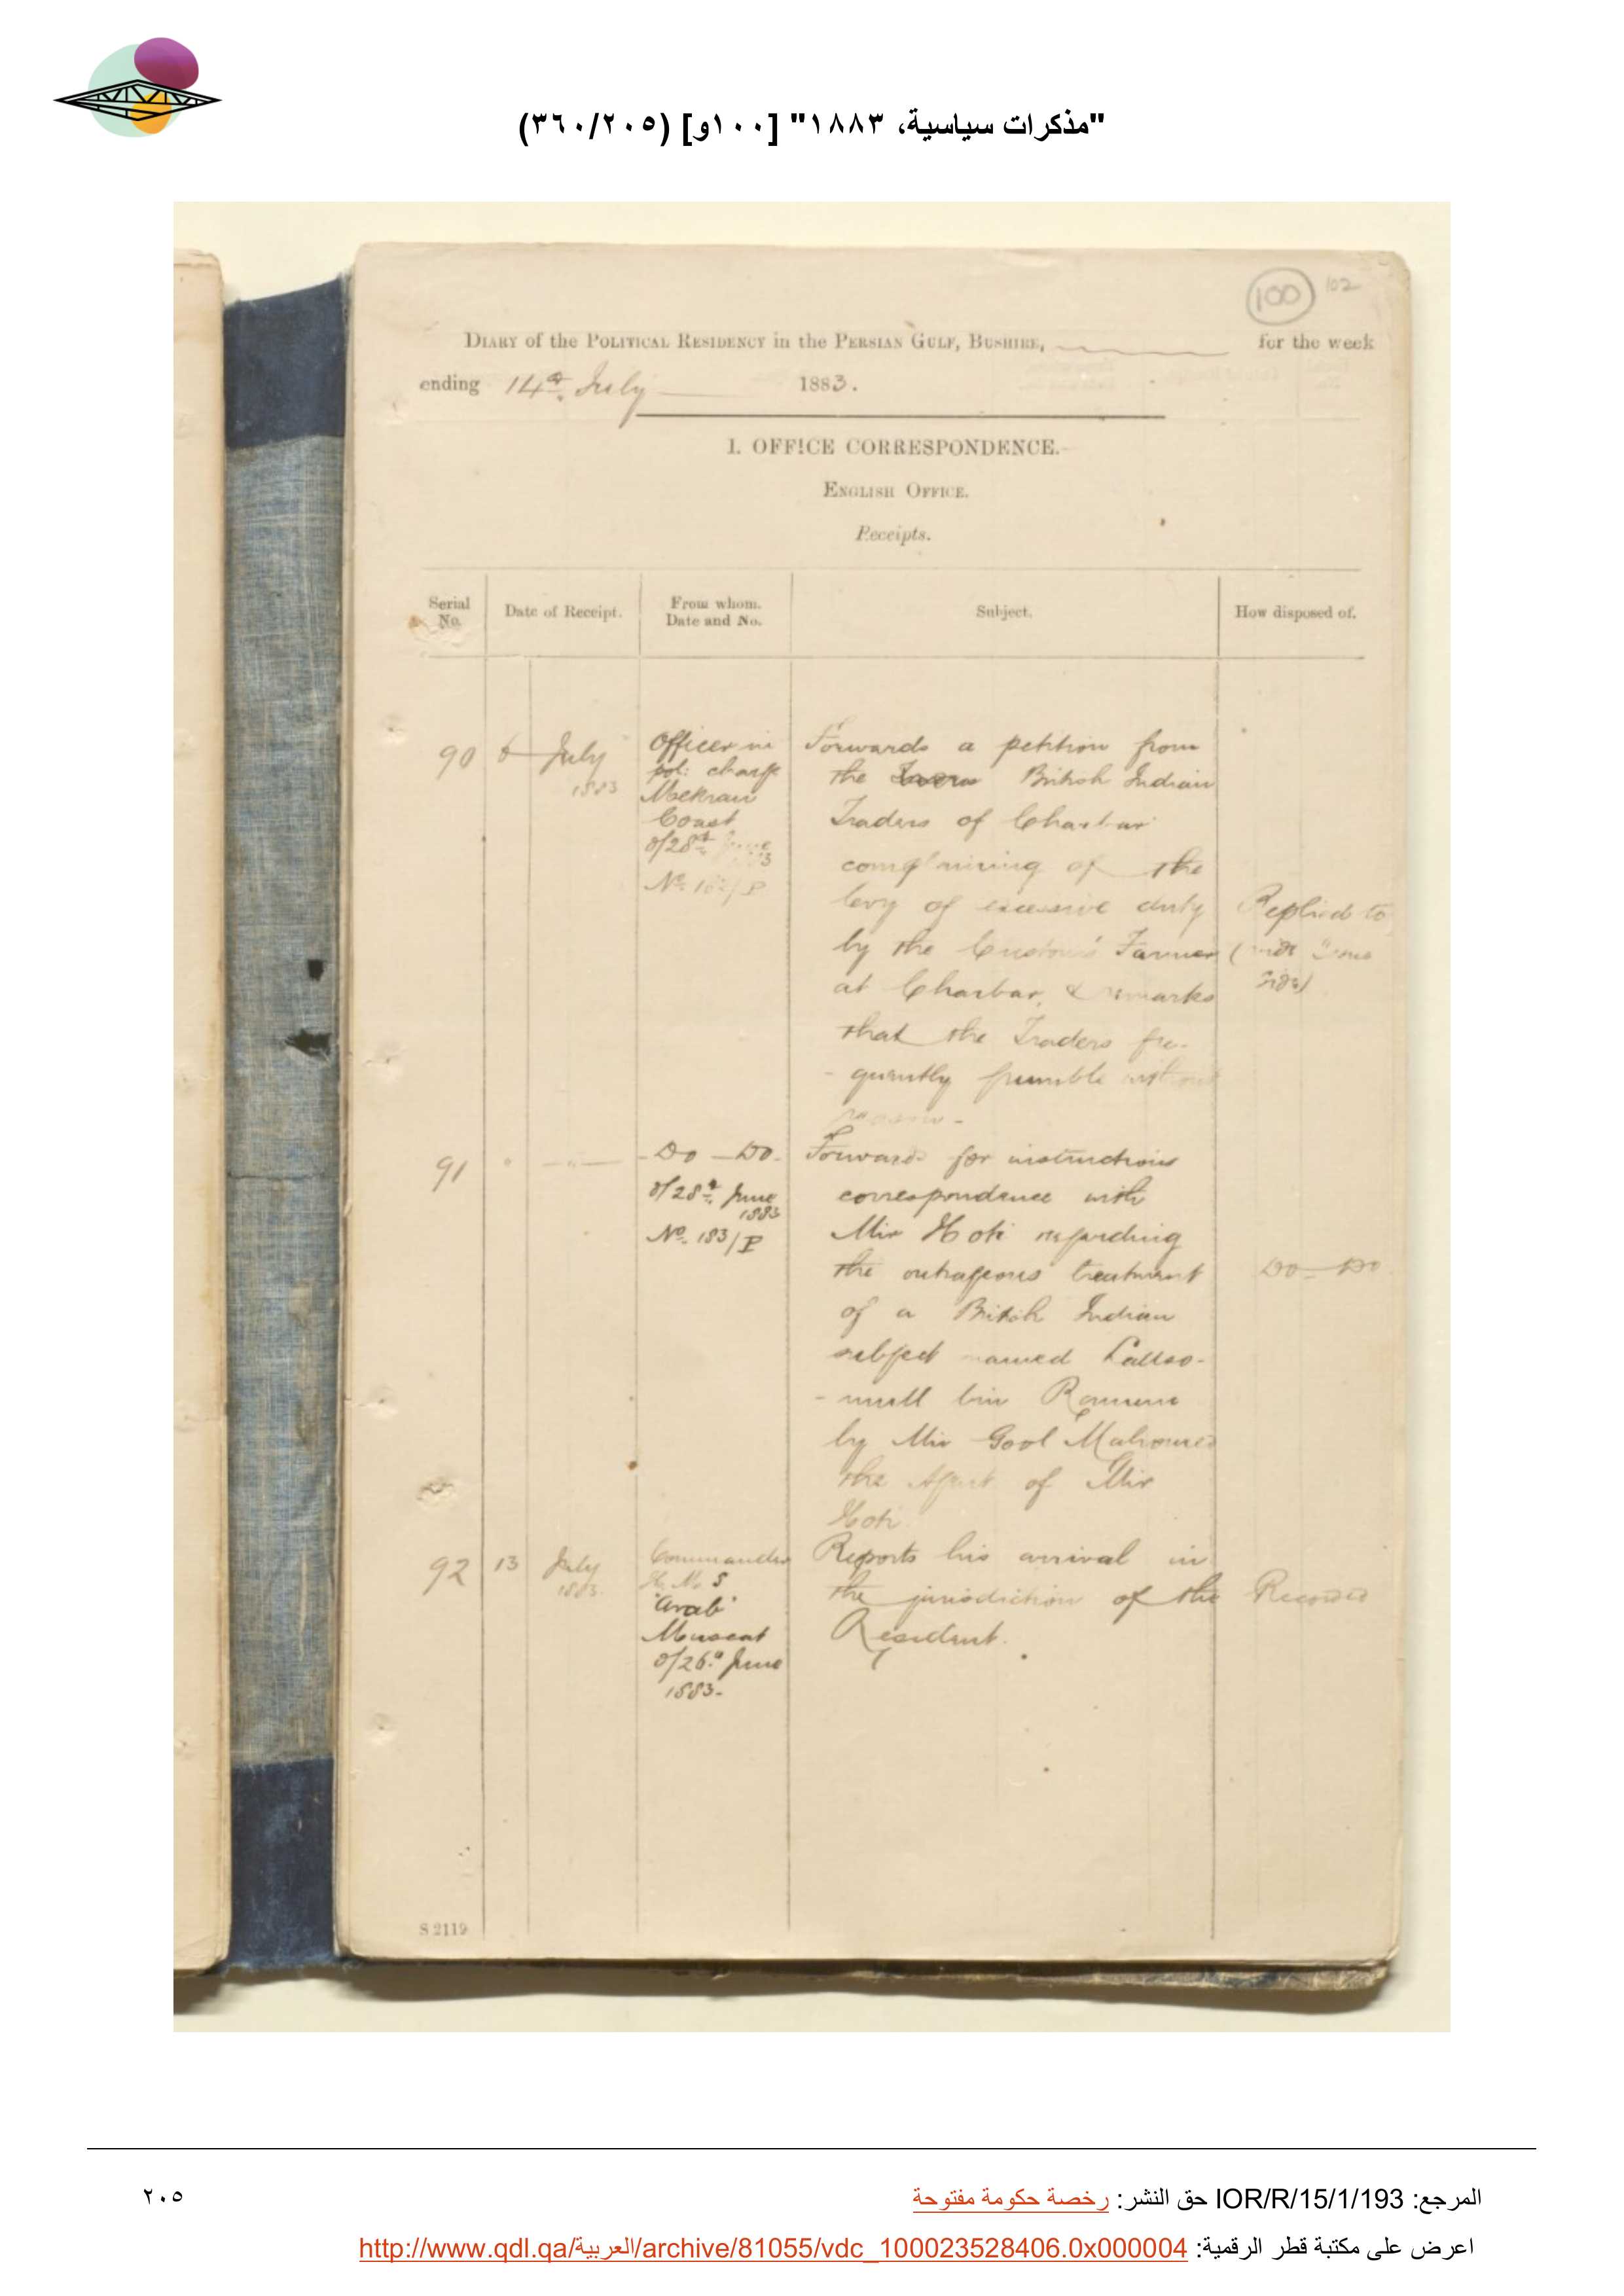 "مذكرات سياسية، ١٨٨٣" [١٠٠و] (٣٦٠/٢٠٥)
100 102
DIARY of the POLITICAL RESIDENCY in the PERSIAN GULF, BUSHIRE, for the week
ending 14th July 1883.
I. OFFICE CORRESPONDENCE.
ENGLISH OFFICE.
Receipts.
Serial No.
Date of Receipt.
From whom. Date and No.
Subject.
How disposed of.
90
July
1883
Officer in
pol: charge
Mekran
Coast
d/28th June
1883
No.
Forwards a petition from
the British Indian
Traders of Charbar
complaining of the
levy of excessive duty
by the Customs Farmer
at Charbar, & remarks
that the Traders fre-
-quently grumble without
reason.
Replied to
91
Do Do
d/28th June
1883
No. 183/P
Forwards for instructions
correspondence with
Mir Hoti regarding
the outrageous treatment
of a British Indian
subject named
-mull bin
by Mir Gool Mahomed
the Agent of Mir
Hoti
Do Do
92
13 July
1883.
Commander
H.M.S
'Arab'
Muscat
d/26th June
1883.
Reports his arrival in
the jurisdiction of the
Resident.
Recorded
S 2119
المرجع: IOR/R/15/1/193 حق النشر: رخصة حكومة مفتوحة
٢٠٥
اعرض على مكتبة قطر الرقمية: http://www.qdl.qa/العربية/archive/81055/vdc_100023528406.0x000004